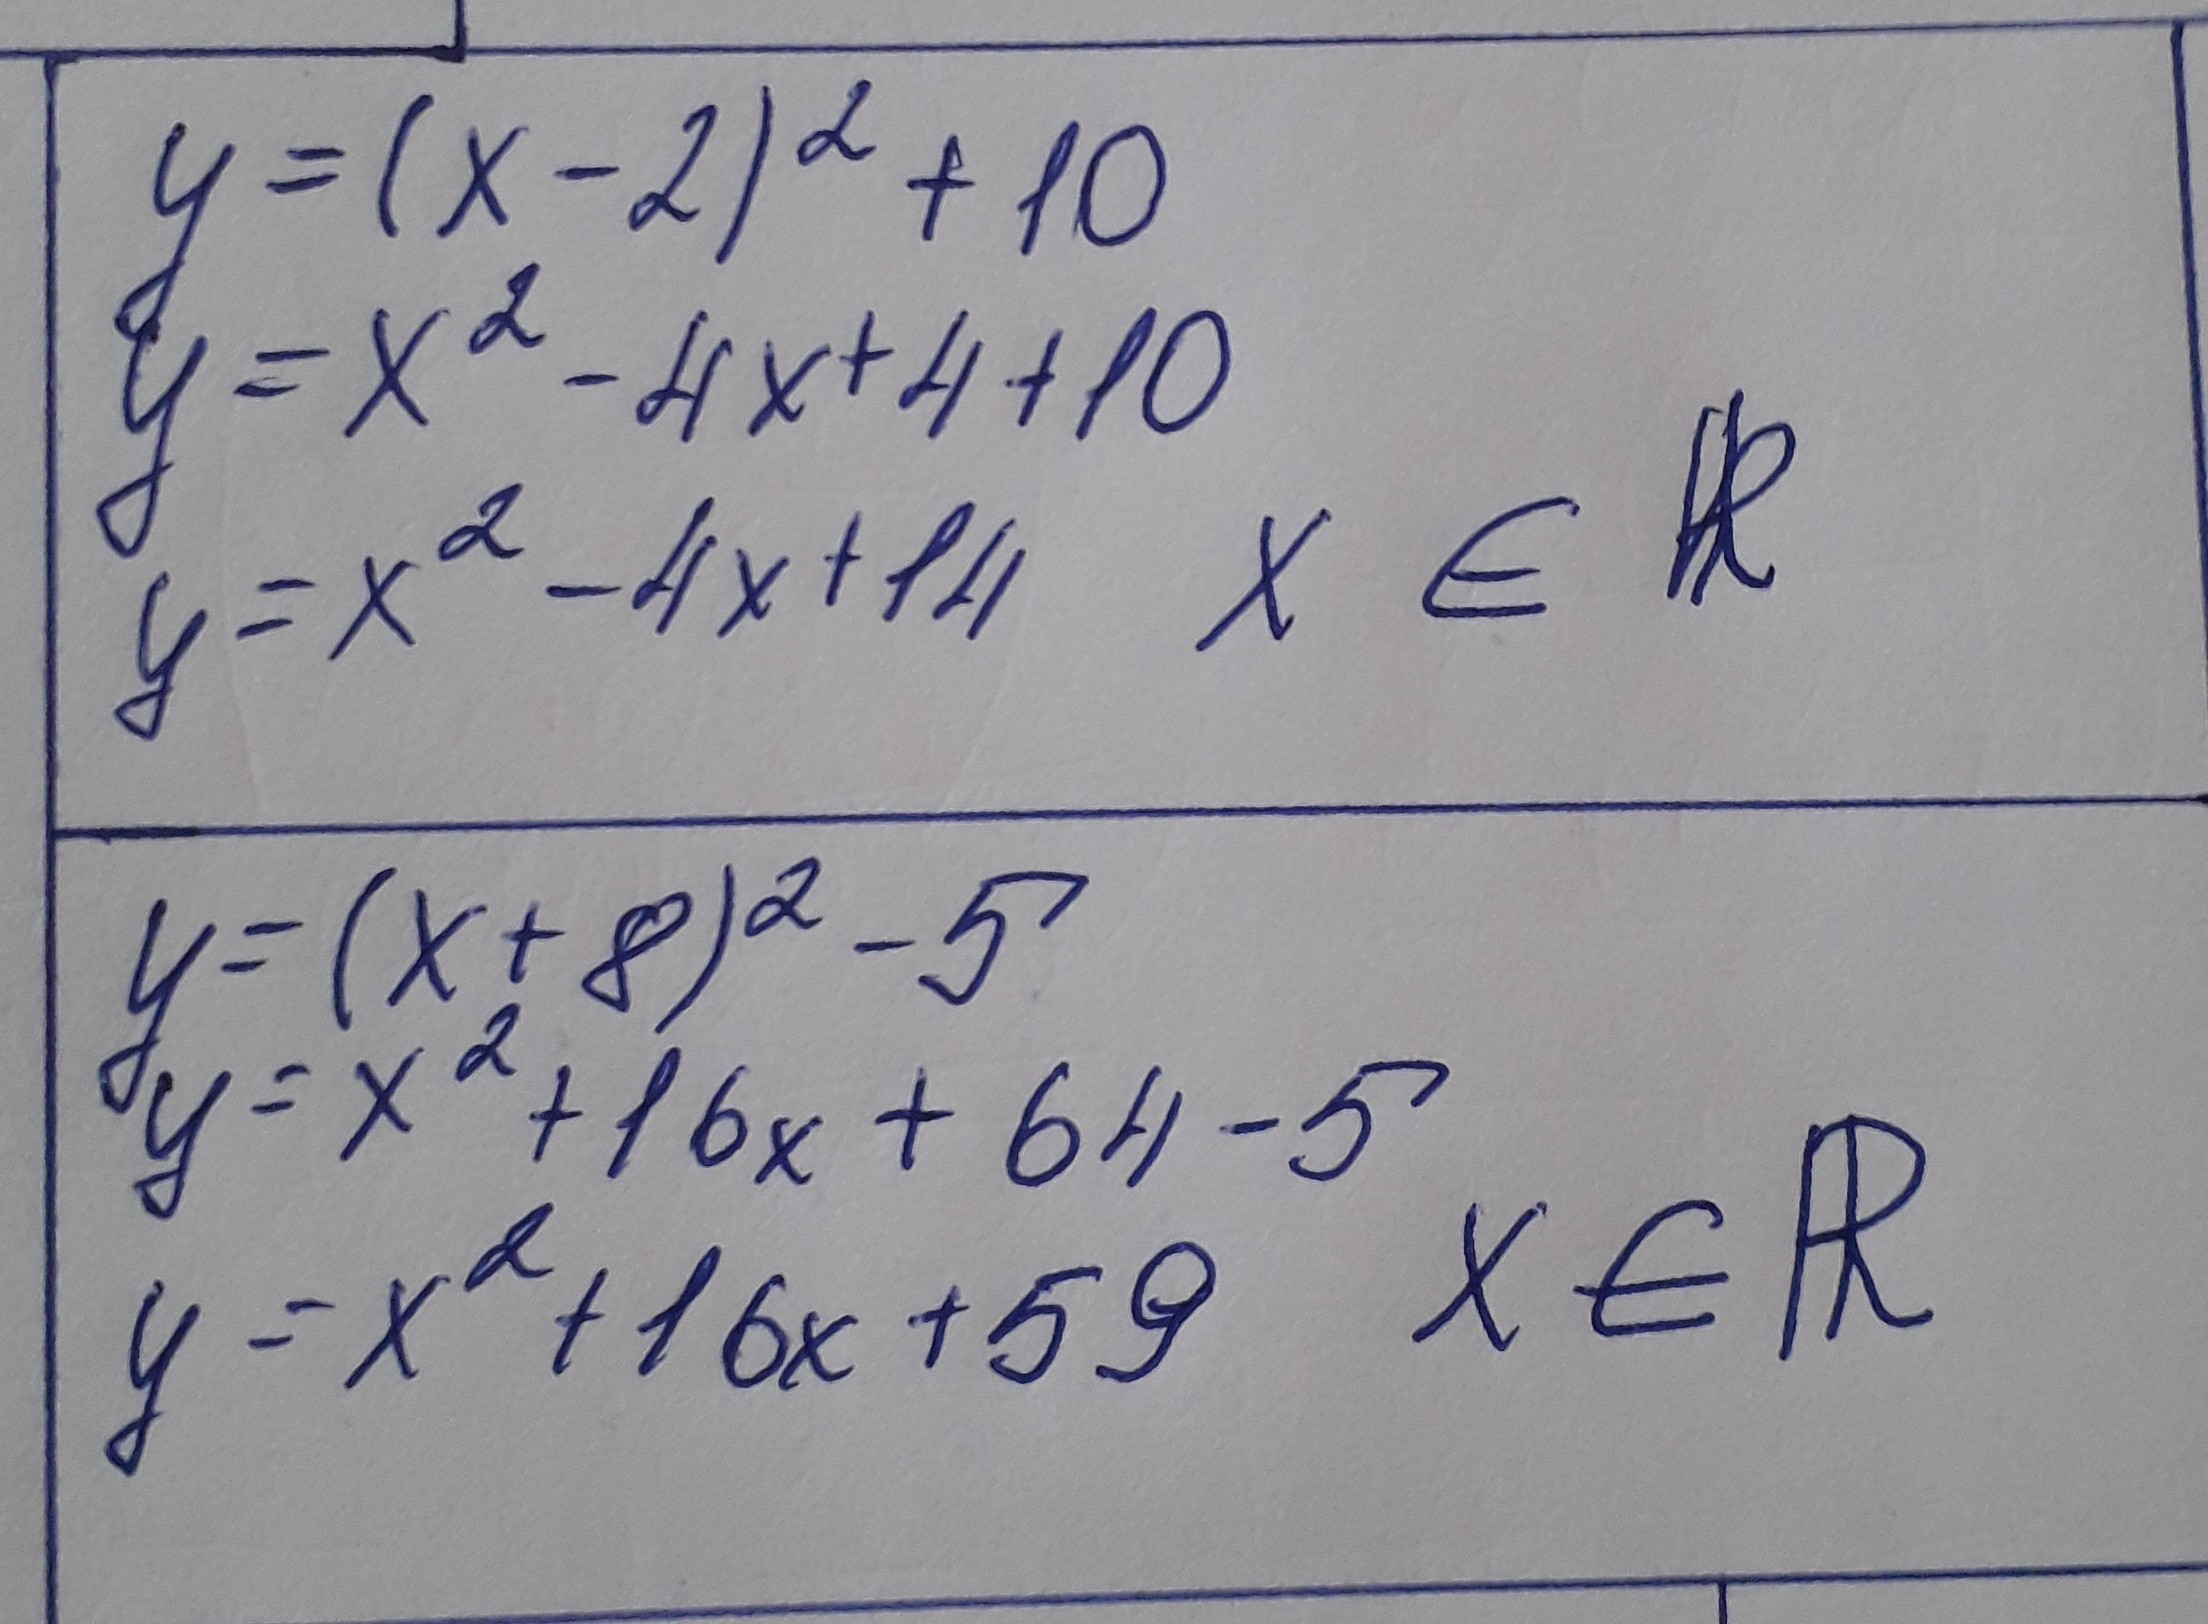 y = (x - 2)² + 10
y = x² - 4x + 4 + 10
y = x² - 4x + 14 x ∈ ℝ
y = (x + 8)² - 5
y = x² + 16x + 64 - 5
y = x² + 16x + 59 x ∈ ℝ